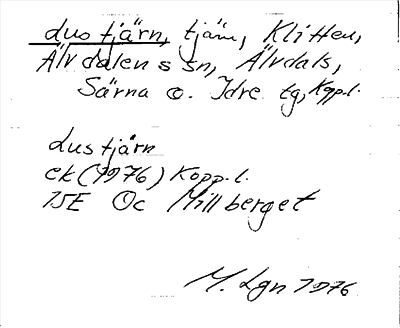 Lustjärn, tjärn, Klitten,
Älvdalens sn, Älvdals,
Särna o. Idre tg, Kopp.l.
Lustjärn
ek (1976) Kopp.l.
15E Oc Millberget
M. Lgn 1976